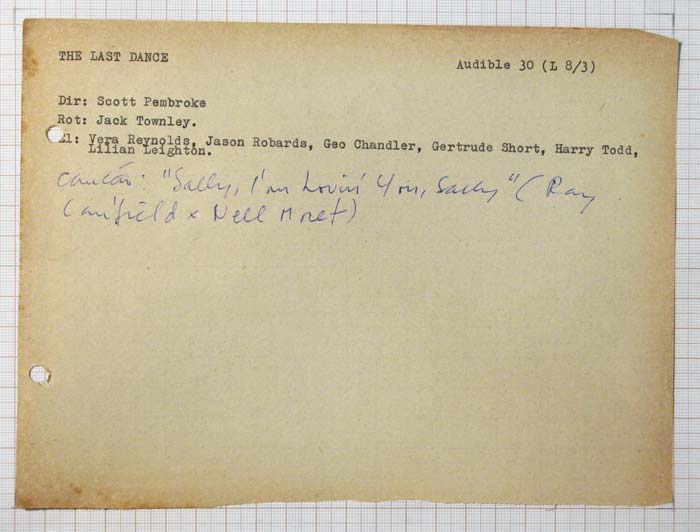 THE LAST DANCE
Audible 30 (L 8/3)
Dir: Scott Pembroke
Rot: Jack Townley.
El: Vera Reynolds, Jason Robards, Geo Chandler, Gertrude Short, Harry Todd,
Lilian Leighton.
canção: "Sally, I'm Lovin' You, Sally" (Ray
Canfield x Nell Moret)